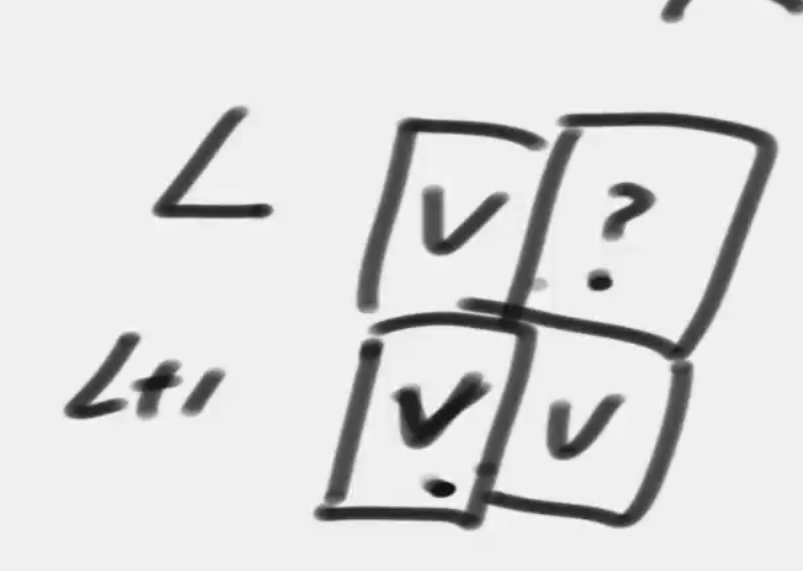 L V ?
L+1 V V